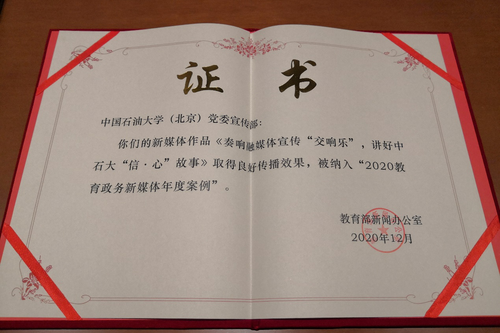 证书
中国石油大学（北京）党委宣传部：
你们的新媒体作品《奏响融媒体宣传“交响乐”，讲好中
石大“信·心”故事》取得良好传播效果，被纳入“2020教
育政务新媒体年度案例”。
教育部新闻办公室
2020年12月